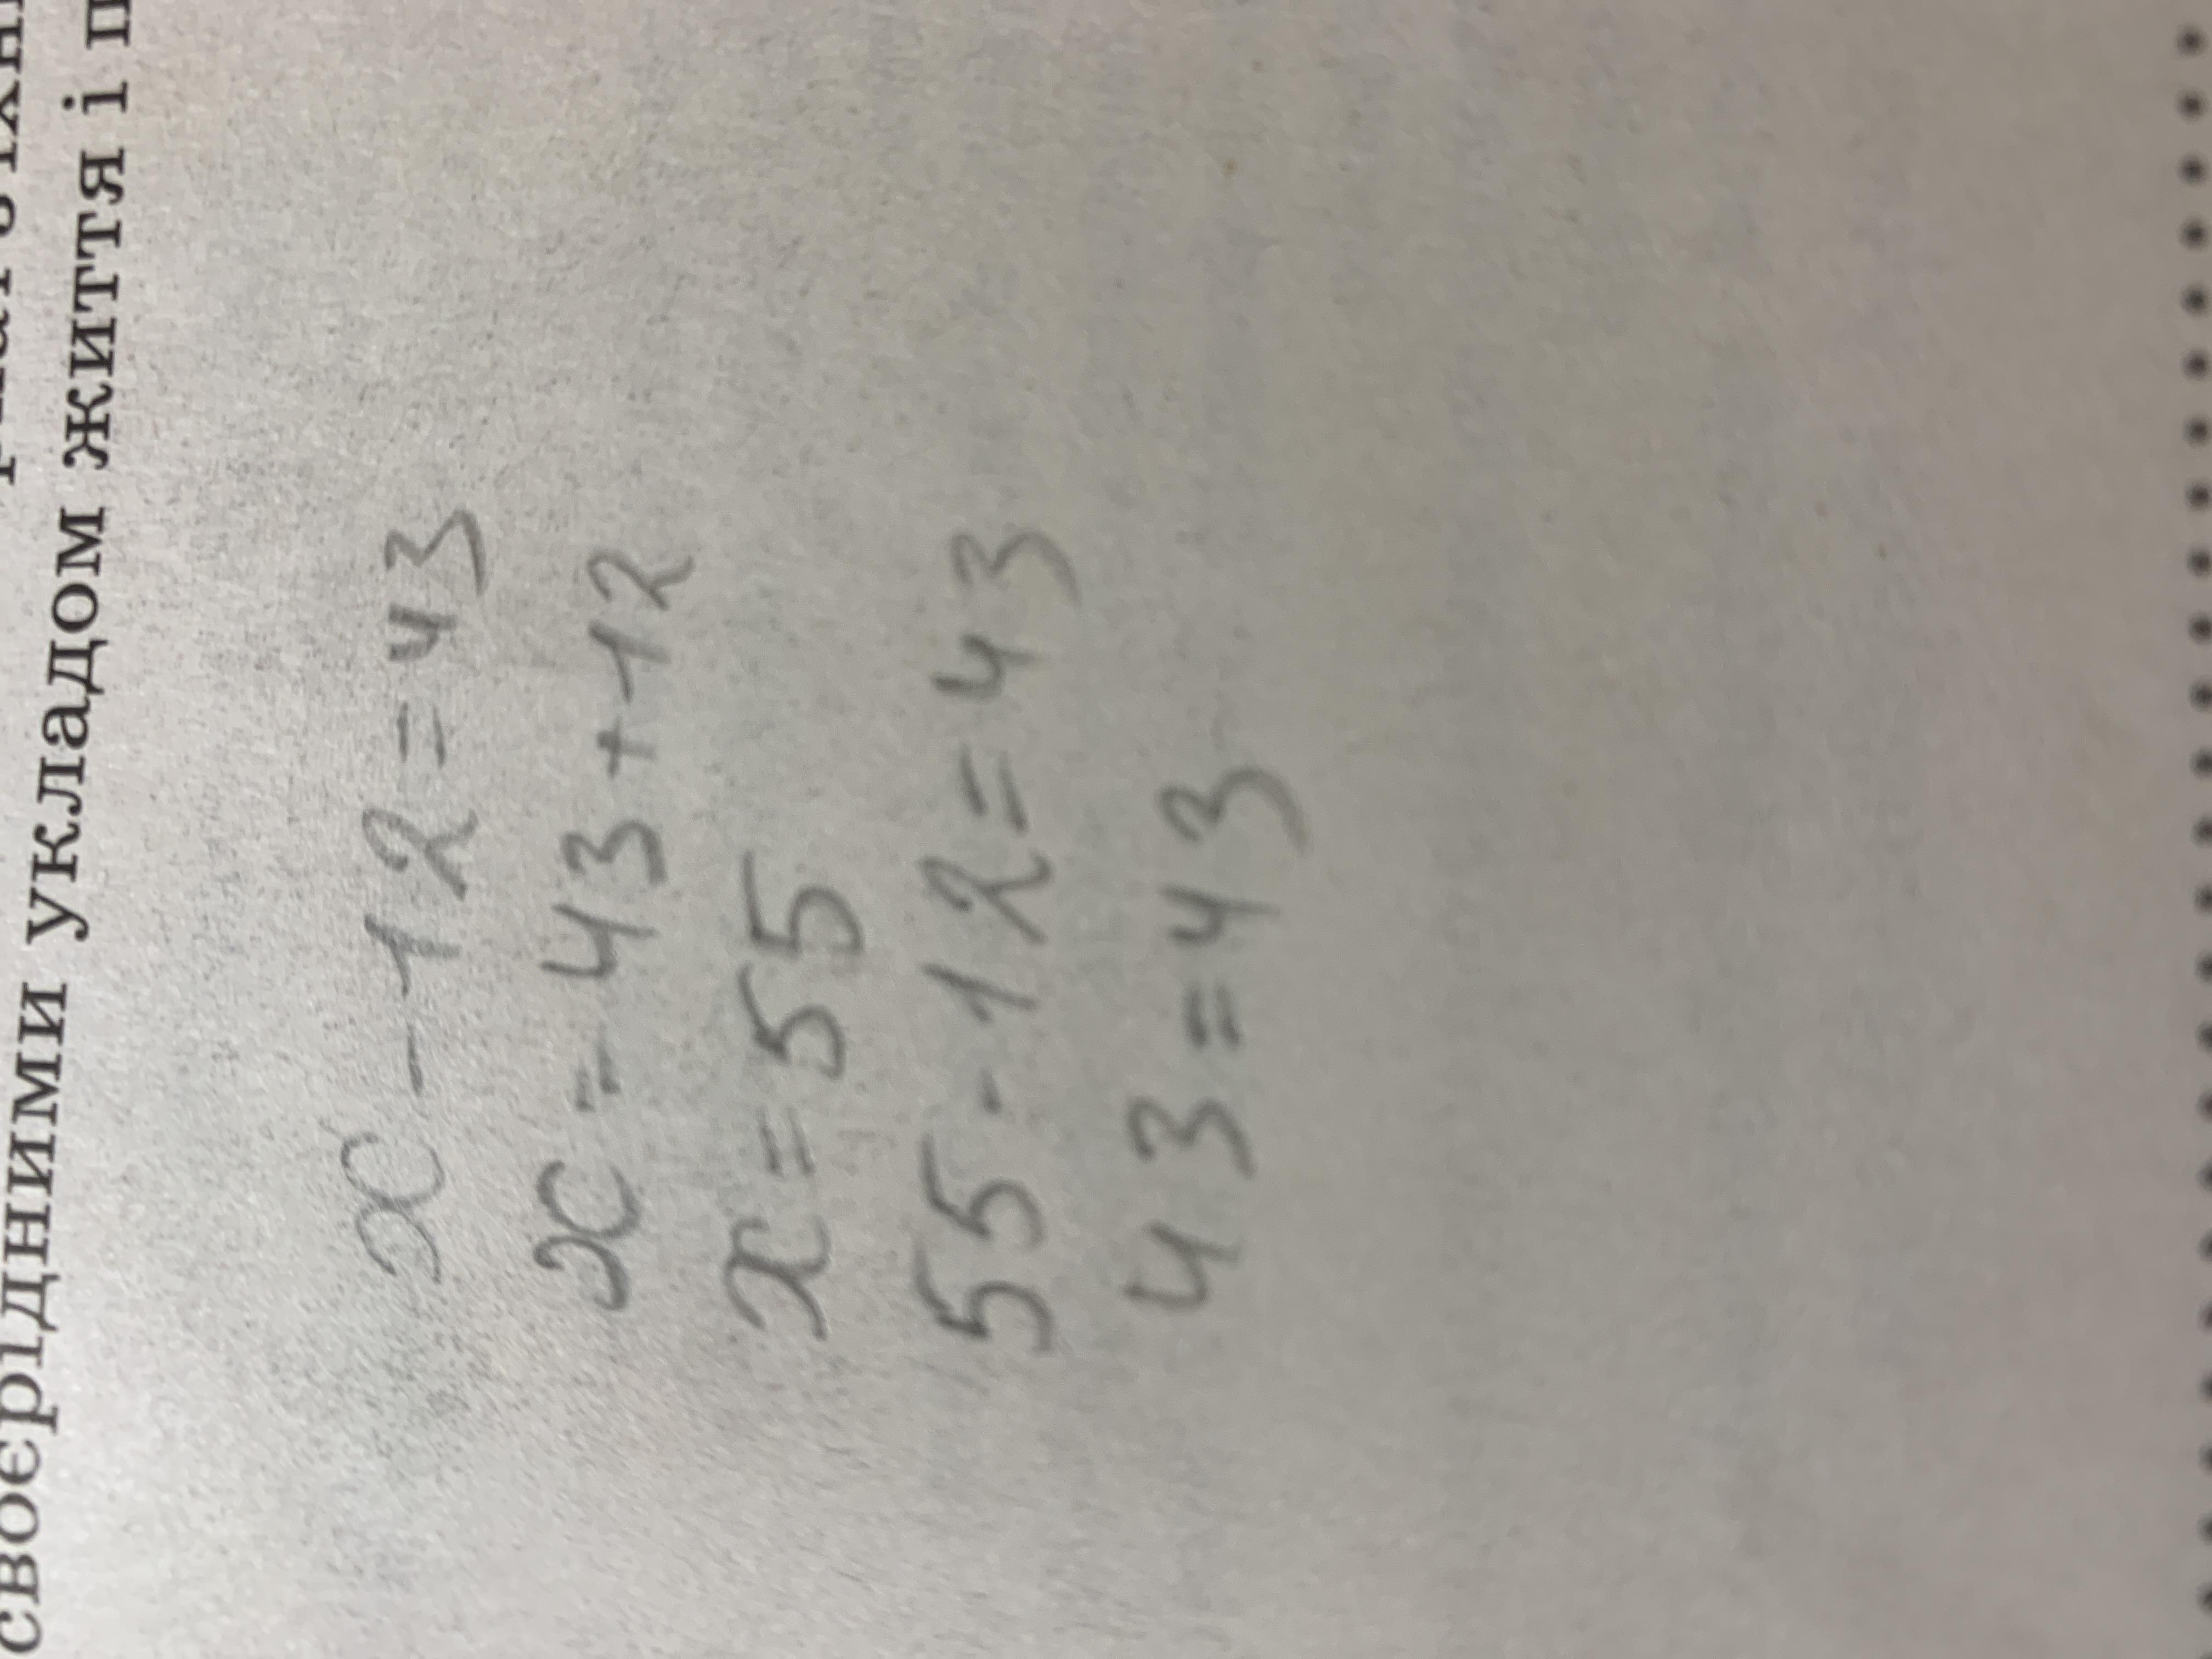 своєрідними укладом життя і п
x - 12 = 43
x = 43 + 12
x = 55
55 - 12 = 43
43 = 43